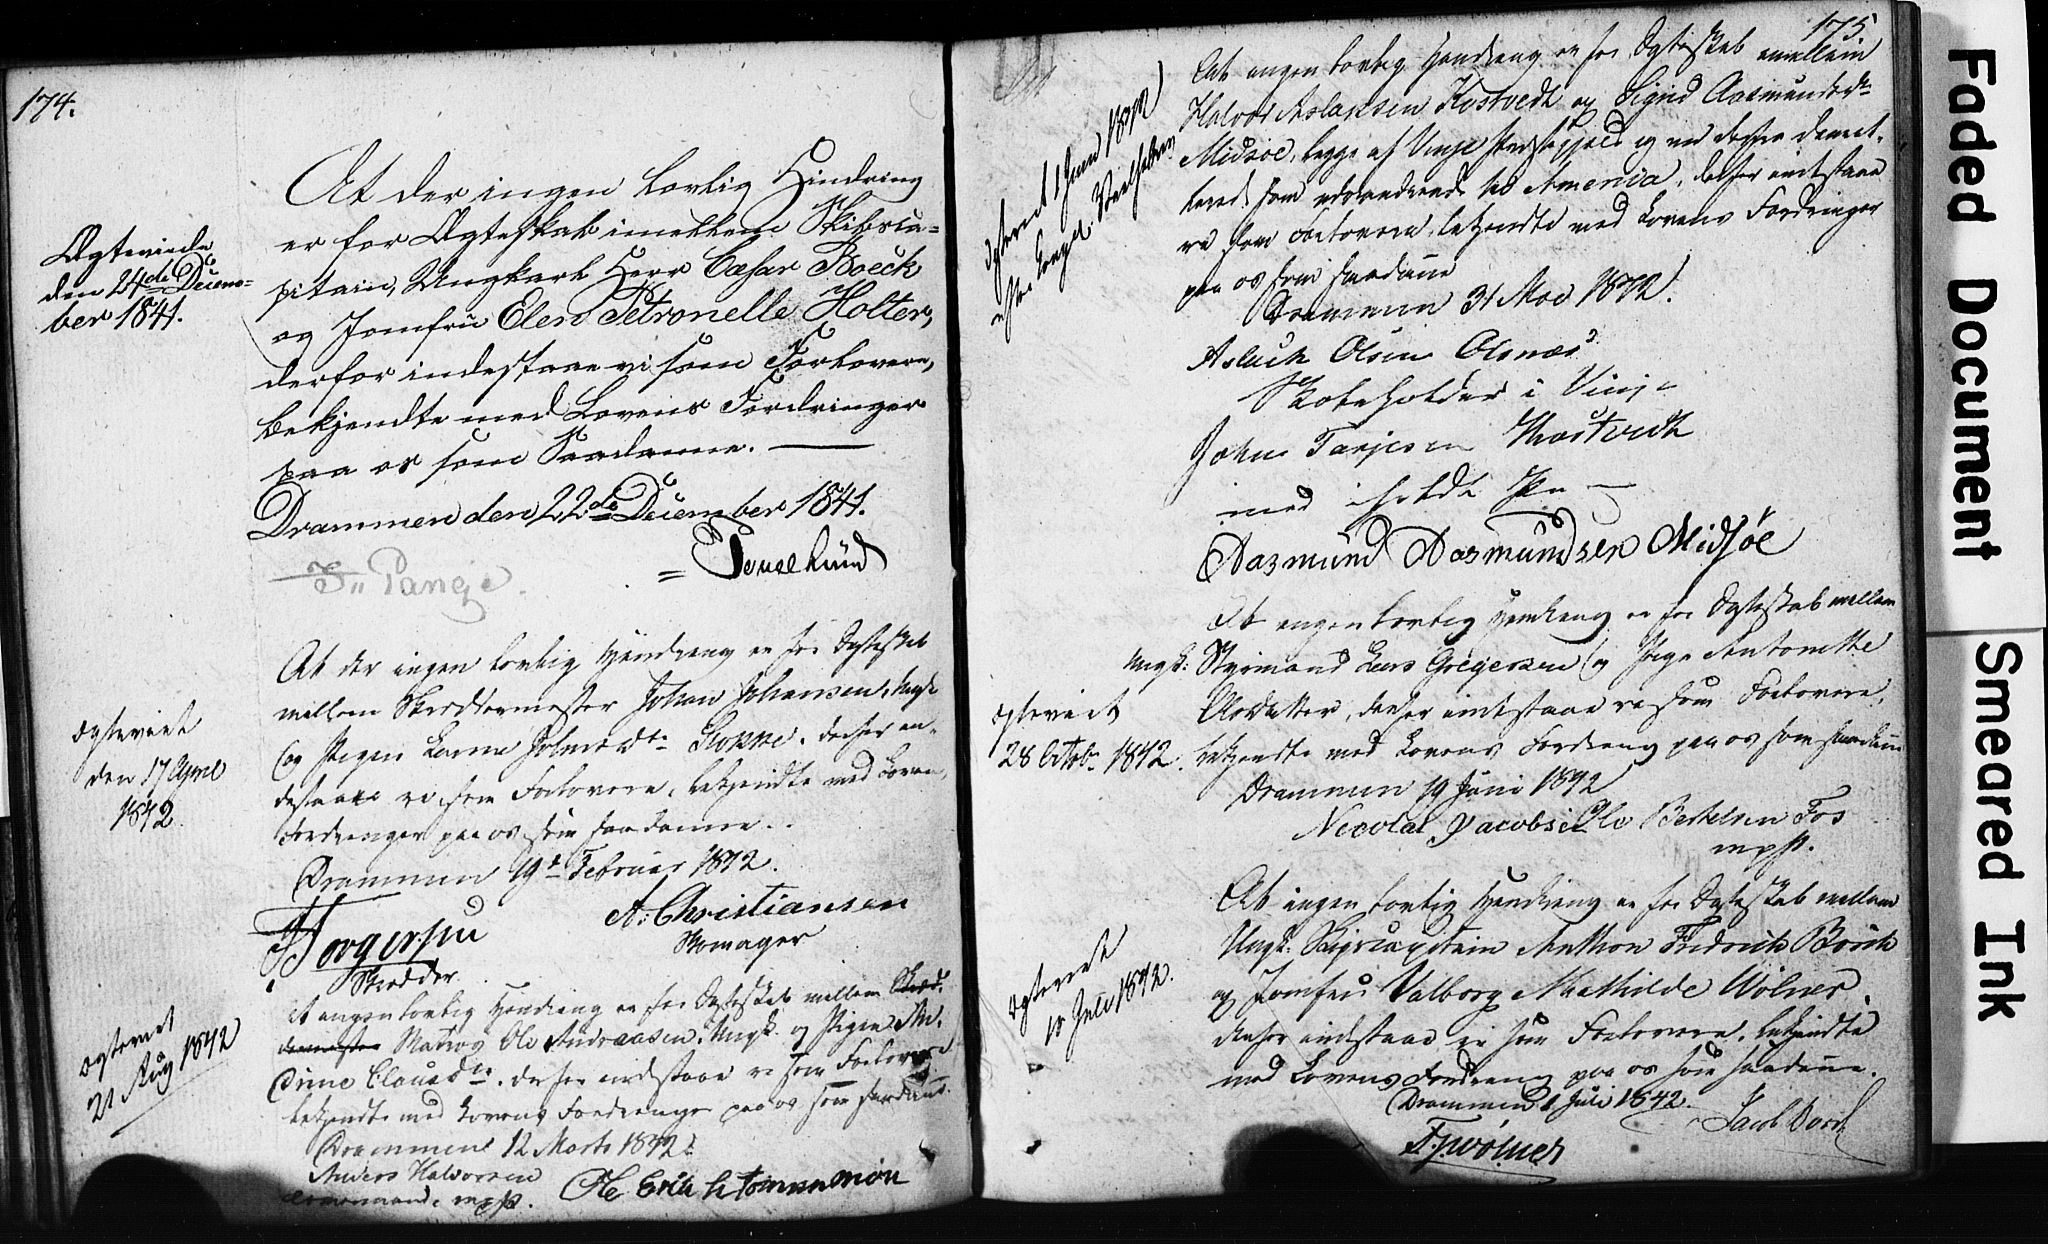 174.
Ægteviede
den 24de Decem=
ber 1841.
At der ingen lovlig Hindring
er for Ægteskab imellem Skibsca=
pitain, Ungkarl Herr Cæsar Boeck
og Jomfru Elen Petronelle Holter,
derfor indestaae vi som Forlovere,
bekjendte med Lovens Fordringer
paa os som Saadanne.
Drammen den 22de December 1841.
At der ingen lovlig Hindring er for Ægteskab
mellem Skreddermester Johan Johansen, Ungk
og Pigen Karine Johns Dtr., derfor in-
destaae vi som Forlovere, bekjendte med Lovens
Fordringer paa os som saadanne.
Drammen 19de Februar 1842.
ægteviet
den 17 April
1842.
Torgersen
Skredder
A. Christiansen
Skomager
At ingen lovlig Hindring er for Ægteskab mellem Skred-
dermester Matros Ole Andreassen, Ungk. og Pigen An.
Clausdtr., derfor indestaae vi som Forlovere
bekjendte med Lovens Fordringer paa os som saadanne.
Drammen 12 Marts 1842.
Ægteviet
21 Aug 1842
Anders Halvorsen
mpp.
Ole
175
At ingen lovlig Hindring er for Ægteskab imellem
Halvor Aslaksen Kostvedt og Signe Aasmundsdtr
Midsøe, begge af Vinje Præstegjæld og
som udvandrende til America, derfor indestaae
vi som Forlovere, bekjendte med Lovens Fordringer
paa os som saadanne
Drammen 31 Mai 1842.
Ægteviet 1 Juni 1842
Aslach Olsen Olsnæs
i Vinje
John Tarjesen
med iholdt Pen
Aasmund Aasmundsen Midsøe
At ingen lovlig Hindring er for Ægteskab mellem
Ungk: Styrmand Lars Gregersen og Pige Antonette
Olsdatter, derfor indestaae vi som Forlovere,
bekjendte med Lovens Fordring paa os som saadanne
Drammen 19 Juni 1842
ægteviet
28 Octob. 1842.
Nicolai Jacobsen Ole Bertelsen Fos
mpp.
At ingen lovlig Hindring er for Ægteskab mellem
Ungk: Skipscapitain Anthon Fredrich Boeck
og Jomfru Valborg Mathilde Wølner,
derfor indestaae vi som Forlovere, bekjendte
med Lovens Fordring paa os som saadanne.
Drammen 1 Juli 1842.
Ægteviet
10 Juli 1842.
Wølner
Jacob
Faded Document
Smeared Ink